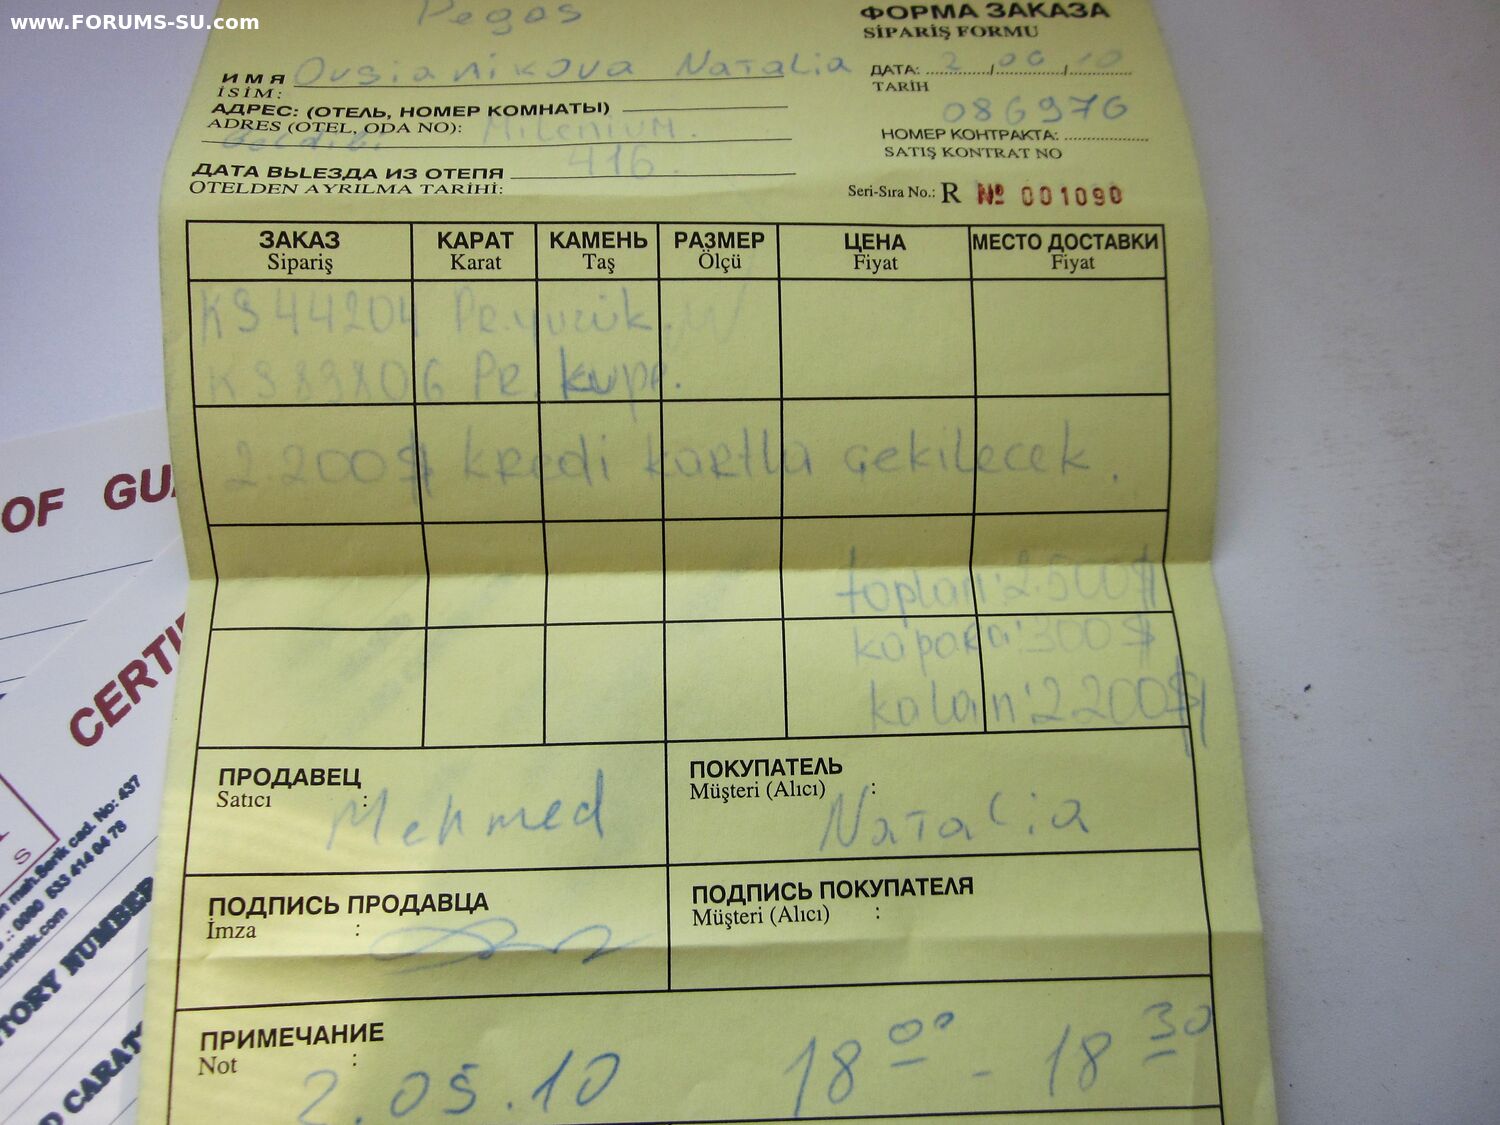 www.FORUMS-SU.com
Pegas
ФОРМА ЗАКАЗА
SİPARİŞ FORMU
ИМЯ Ovsianikova Natalia
İSİM:
ДАТА: 2 / 06 / 10
TARİH
АДРЕС: (ОТЕЛЬ, НОМЕР КОМНАТЫ)
ADRES (OTEL, ODA NO): Milenium.
086976
НОМЕР КОНТРАКТА:
SATIŞ KONTRAT NO
416.
ДАТА ВЫЕЗДА ИЗ ОТЕПЯ
OTELDEN AYRILMA TARİHİ:
Seri-Sıra No.: R № 001090
ЗАКАЗ КАРАТ КАМЕНЬ РАЗМЕР ЦЕНА МЕСТО ДОСТАВКИ
Sipariş Karat Taş Ölçü Fiyat Fiyat
KS44204 Pe.yuzuk.
KS83806 Pe.kupe.
2.200$ kredi kartla çekilecek.
toplam:2.500$
kapara:300$
kalan:2200$
ПРОДАВЕЦ
Satıcı : Mehmed
ПОКУПАТЕЛЬ
Müşteri (Alıcı) : Natalia
ПОДПИСЬ ПРОДАВЦА
İmza :
ПОДПИСЬ ПОКУПАТЕЛЯ
Müşteri (Alıcı) :
ПРИМЕЧАНИЕ
Not :
2.05.10 18 00 - 18 30
OF GU
CERTI
mah.Serik cad. No: 437
0090 533 414 04 78
TORY NUMBER
D CARAT